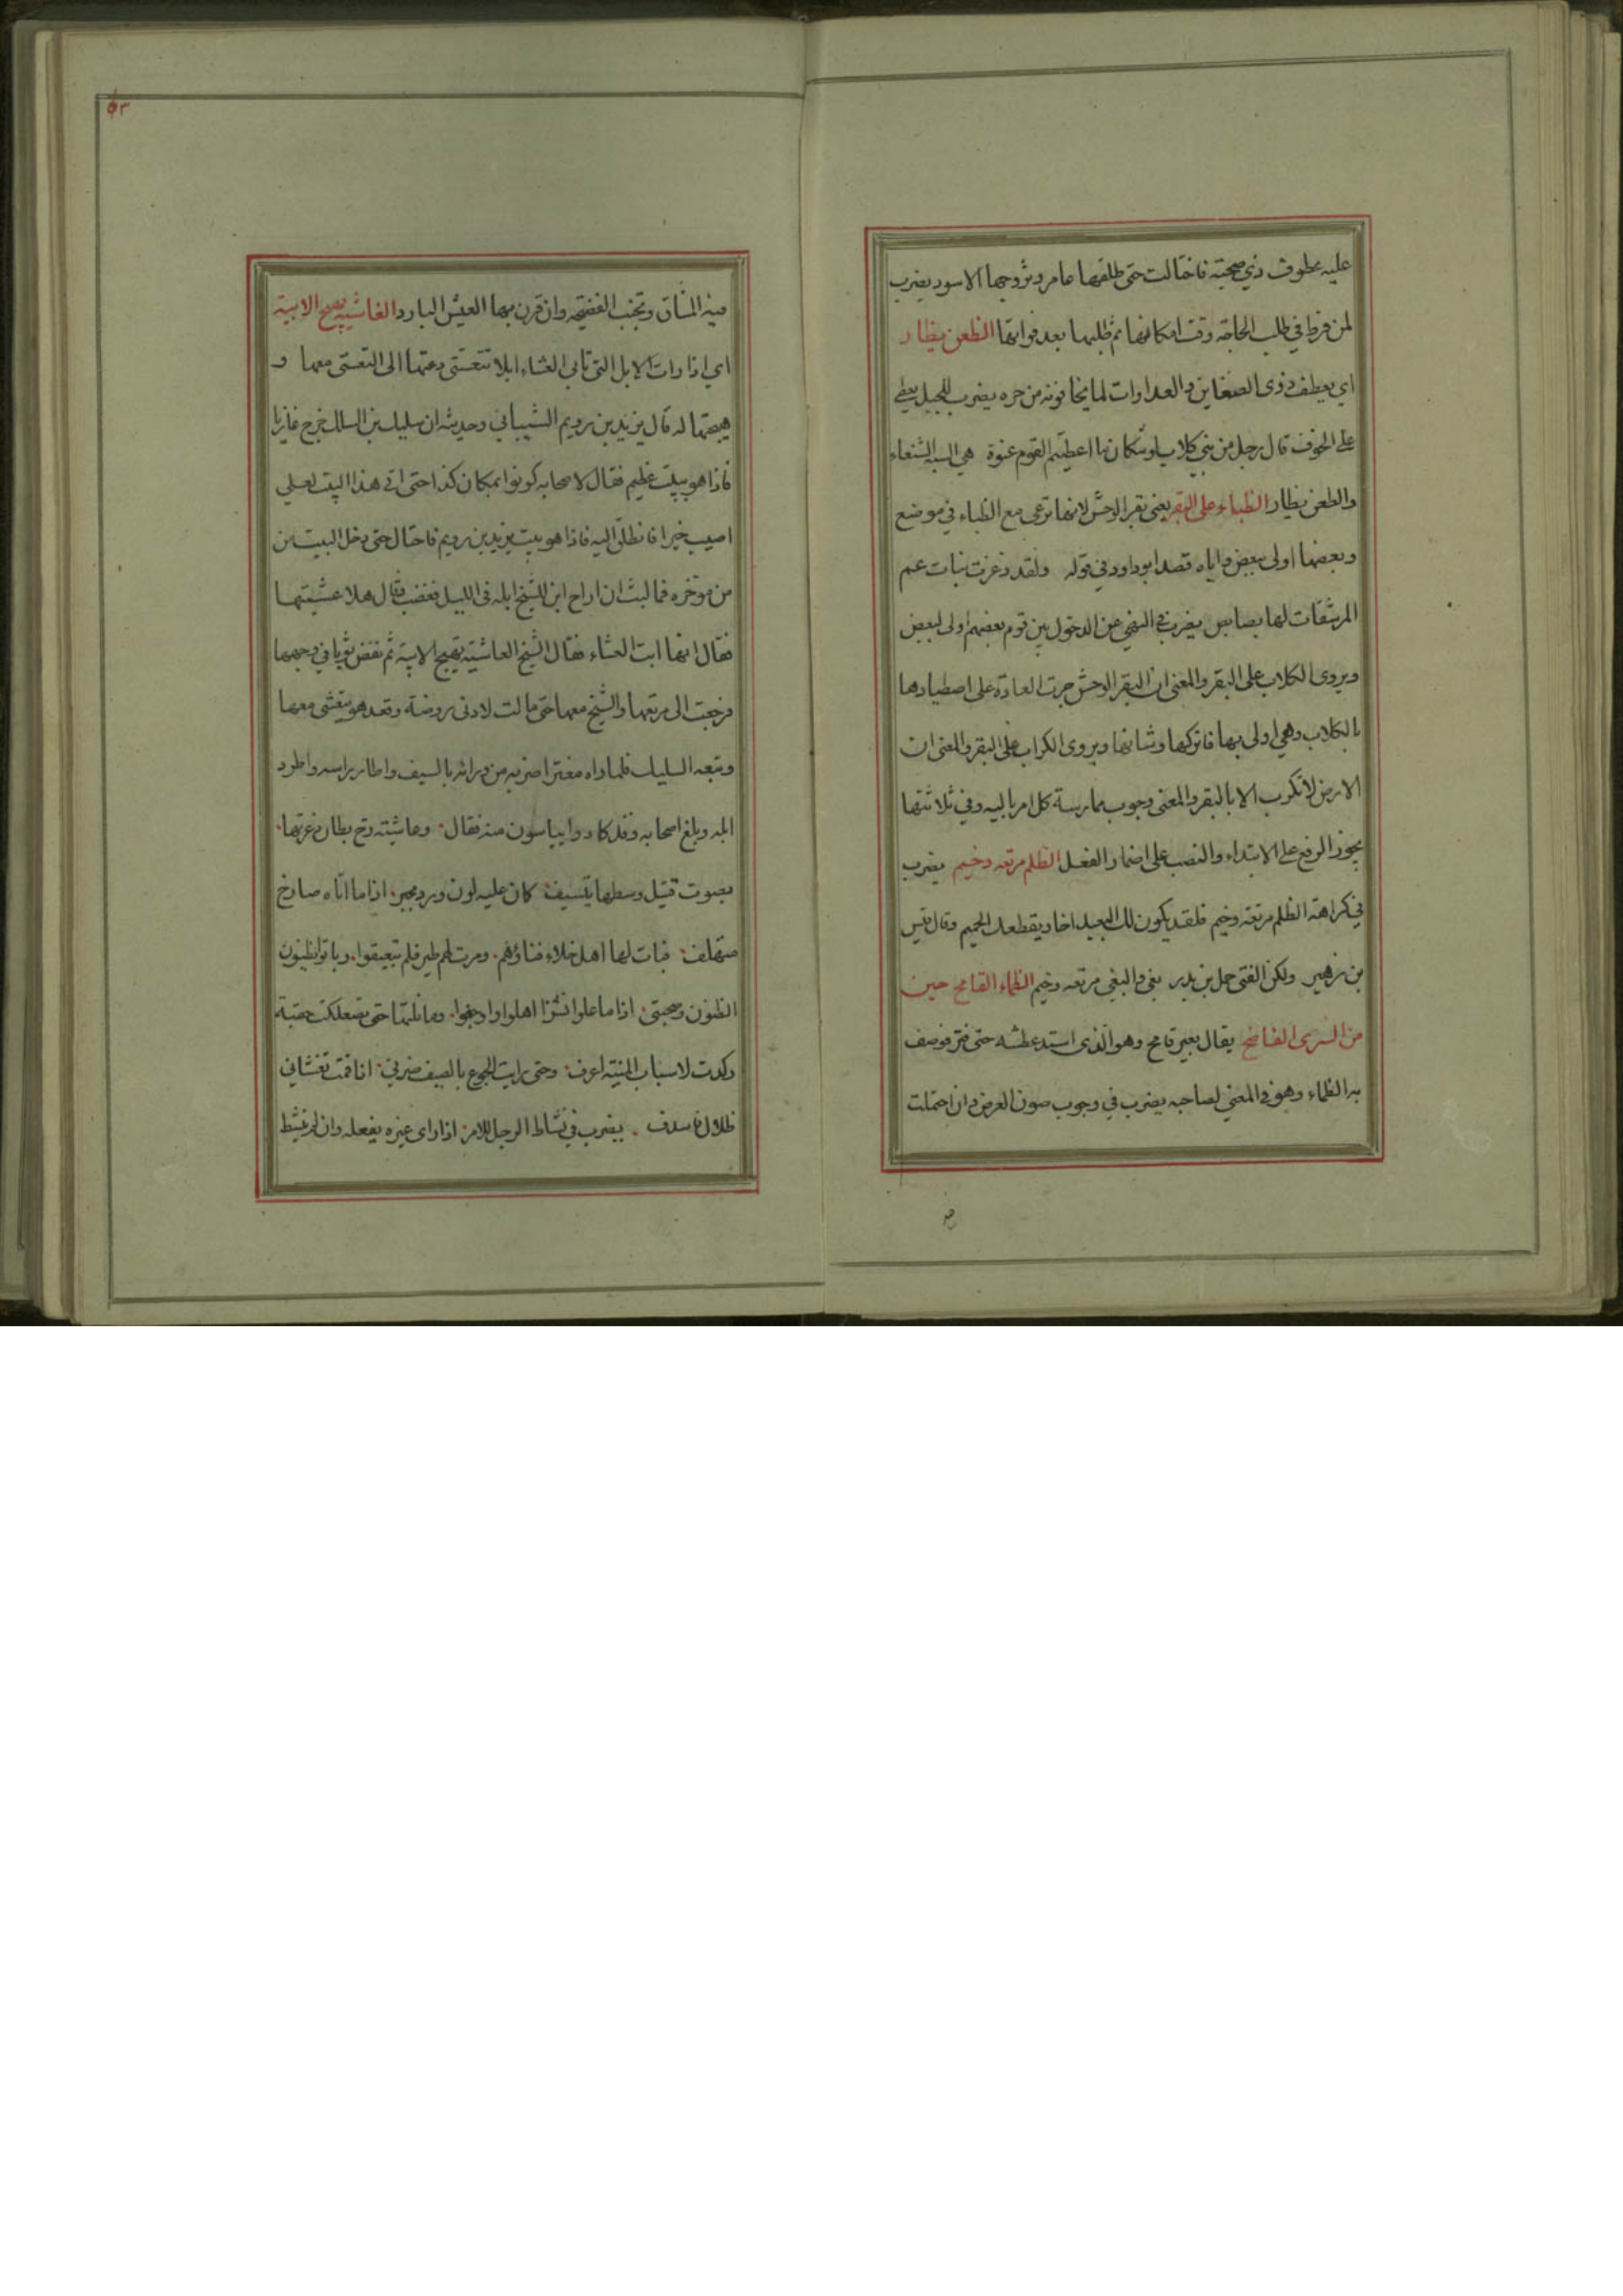 عليه عطوف ذي صحبته فاختالت حتى طلقها عامر وتزوجها الاسود يضرب
لمن فرط في طلب الحاجة وقت امكانها ثم طلبها بعد فواتها الطعن يظار
اي يعطف ذوى الضغاين والعداوات لما يخافونه من حره يضرب للبخيل يعطي
على الخوف قال رجل من بني كلاب اعطيتم القوم عنوة هي السبه الشنعاء
والطعن يظار الظباء على البقر يعني بقر الوحش لانها ترعى مع الظباء في موضع
وبعضها اولى ببعض واياه قصد ابو داود في قوله ولقد ذعرت بنات عم
المرشقات لها بصابص يضرب في النهي عن الدخول بين قوم بعضهم اولى لبعض
ويروى الكلاب على البقر والمعنى ان البقر الوحش جرت العادة على اصطيادها
بالكلاب وهي اولى بها فاتركها وشانها ويروى الكراب على البقر والمعنى ان
الارض لا تكرب الا بالبقر والمعنى وجوب ممارسة كل امر باليه وفي ثلاثتها
يجوز الرفع على الابتداء والنصب على اضمار الفعل الظلم مرتعه وخيم يضرب
في كراهة الظلم مرتعه وخيم فلقد يكون لك البعيد اخا ويقطعك الحميم وقال قيس
بن زهير ولكن الفتى حمل بن بدر بغى والبغي مرتعه وخيم الظماء القامح حين
من السرى الفاضح يقال بعير قامح وهو الذى اشتد عطشه حتى فتر فوصف
به الظماء وهو في المعنى لصاحبه يضرب في وجوب صون العرض وان احتملت
٥٣
فيه المشاق وتجنب الفضيحه وان قرن بها العيش البارد العاشيه تهيج الابية
اي اذا رات الابل التي تابى العشاء ابلا تتعشى دعتها الى التعشى معها و
هيجتها له قال يزيد بن رويم الشيباني وحديثه ان سليك بن السلك خرج غازيا
فاذا هو ببيت عظيم فقال لاصحابه كونوا بمكان كذا حتى اتى هذا البيت لعلي
اصيب خيرا فانطلق اليه فاذا هو بيت يزيد بن رويم فاحتال حتى دخل البيت من
من موخره فما لبث ان اراح ابن للشيخ ابله في الليل فغضب فقال هلا عشيتها
فقال انها ابت العشاء فقال الشيخ العاشيه تهيج الابية ثم نفض ثوبا في وجهها
فرجعت الى مرتعها والشيخ معها حتى مالت لادنى روضة وقعد هو يتعشى معها
وتبعه السليك فلما راه مغترا ضربه من ورائه بالسيف واطار براسه واطرد
ابله وبلغ اصحابه وقد كادوا يياسون منه فقال وعاشيته رح بطان ذعرتها
بصوت قتيل وسطها يتسيف كان عليه لون ورد محبر اذا ما اتاه صارخ
متهلف فبات لها اهل خلاء فناؤهم ومرت لهم طير فلم يتعيفوا وباتوا يظنون
الظنون وصحبتي اذا ما علوا نشزا اهلوا واوجفوا وما نلتها حتى تصعلكت حقبة
وكدت لاسباب المنيته اعرف وحتى رايت الجوع بالصيف ضرني اذا قمت تغشاني
ظلال فاسدف يضرب في نشاط الرجل للامر اذا راى غيره يفعله وان لم ينشط